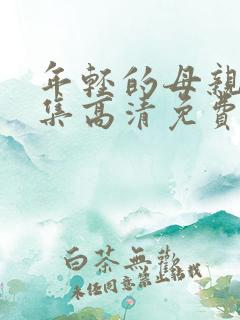 年轻的母親
集高清免費
白茶無歡
未经同意禁止转载